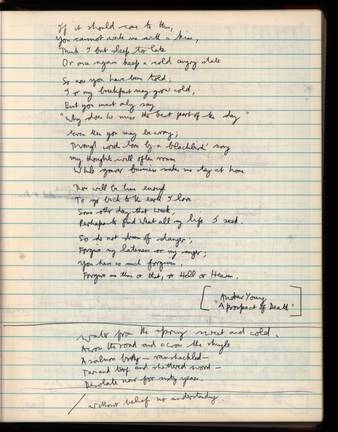 If it should come to this,
You cannot wake me with a kiss,
Think I but sleep too late
Or once again keep a cold angry state
So now you have been told;
I or my breakfast may grow cold,
But you must only say
"Why does he miss the best part of the day"
Even then you may be wrong;
Through woods torn by a blackbird's song
My thoughts will often roam
While graver business makes me stay at home
There will be time enough
To go back to the earth I love
Some other day that week,
Perhaps to find what all my life I seek.
So do not dream of danger;
Forgive my lateness or my anger;
You have so much forgiven,
Forgive me this or that, or Hell or Heaven.
Andrew Young
"A Prospect of Death"
Water from the spring sweet and cold.
Across the road and across the shingle
A salmon bothy –
Tarred and shattered wood –
Desolate now for sixty years.
without belief no understanding